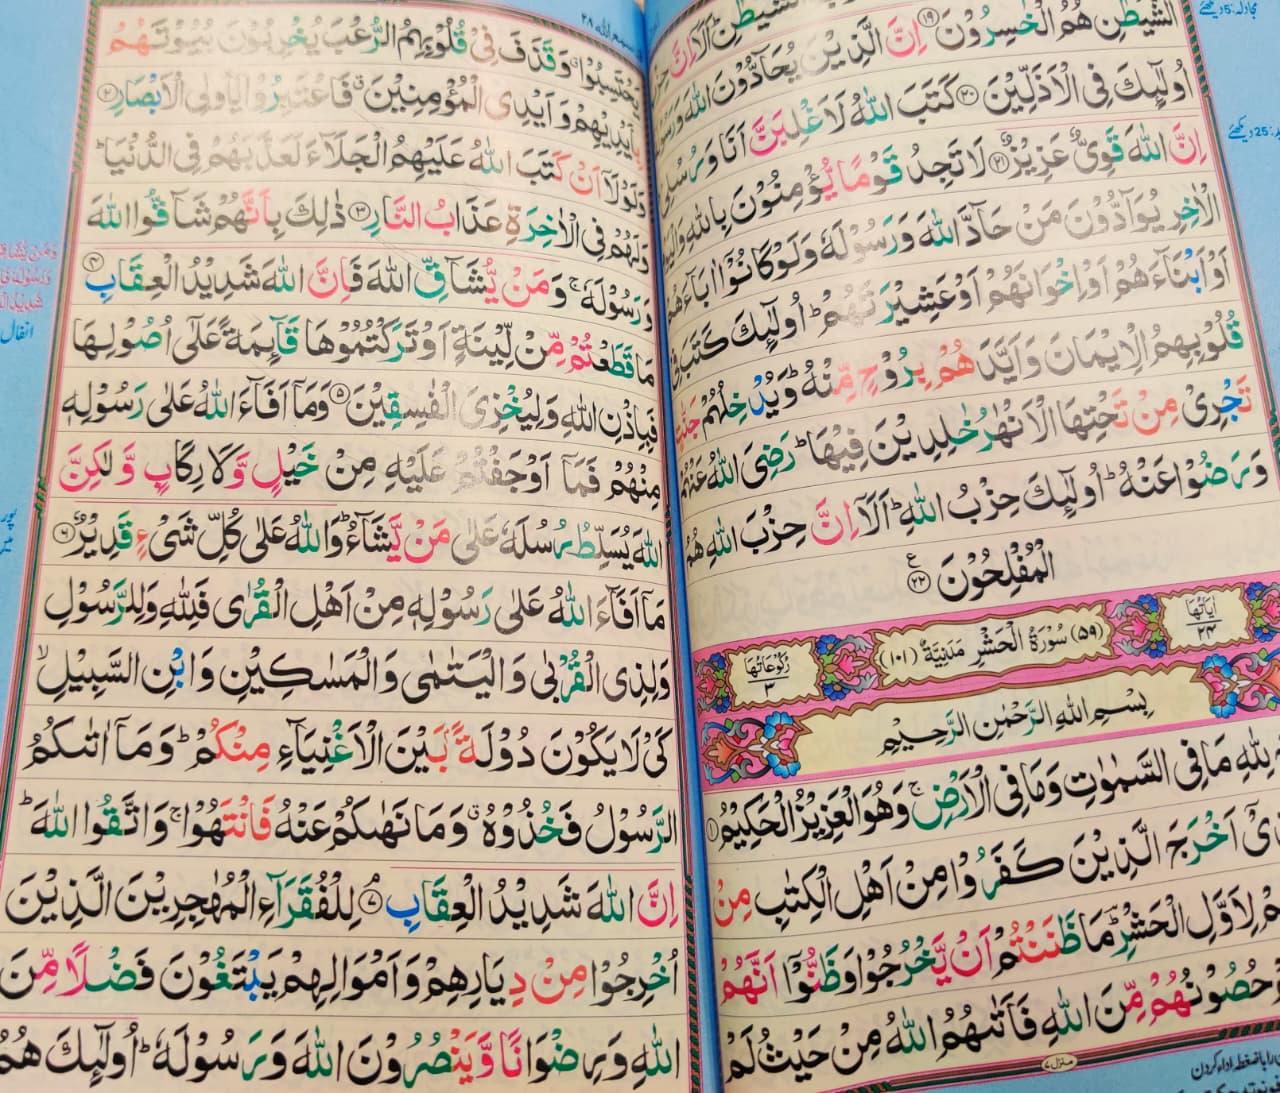 مجادلہ:5 دیکھئے
الشَّیْطٰنِ هُمُ الْخٰسِرُوْنَ ۝۱۹ اِنَّ الَّذِیْنَ یُحَآدُّوْنَ اللّٰهَ وَرَسُوْ
اُولٰٓئِكَ فِی الْاَذَلِّیْنَ ۝۲۰ كَتَبَ اللّٰهُ لَاَغْلِبَنَّ اَنَا وَرُسُلِیْ
اِنَّ اللّٰهَ قَوِیٌّ عَزِیْزٌ ۝۲۱ لَا تَجِدُ قَوْمًا یُّؤْمِنُوْنَ بِاللّٰهِ وَالْیَوْ
الْاٰخِرِ یُوَآدُّوْنَ مَنْ حَآدَّ اللّٰهَ وَرَسُوْلَهٗ وَلَوْ كَانُوْۤا اٰبَآءَهُمْ
اَوْ اَبْنَآءَهُمْ اَوْ اِخْوَانَهُمْ اَوْ عَشِیْرَتَهُمْ ؕ اُولٰٓئِكَ كَتَبَ فِیْ
قُلُوْبِهِمُ الْاِیْمَانَ وَاَیَّدَهُمْ بِرُوْحٍ مِّنْهُ ؕ وَیُدْخِلُهُمْ جَنّٰتٍ
تَجْرِیْ مِنْ تَحْتِهَا الْاَنْهٰرُ خٰلِدِیْنَ فِیْهَا ؕ رَضِیَ اللّٰهُ عَنْهُمْ
وَرَضُوْا عَنْهُ ؕ اُولٰٓئِكَ حِزْبُ اللّٰهِ ؕ اَلَاۤ اِنَّ حِزْبَ اللّٰهِ هُمُ
الْمُفْلِحُوْنَ ۝۲۲ ع
اٰیَاتُهَا ۲۴
(۵۹) سُوْرَةُ الْحَشْرِ مَدَنِیَّةٌ (۱۰۱)
رُكُوْعَاتُهَا ۳
بِسْمِ اللّٰهِ الرَّحْمٰنِ الرَّحِیْمِ
لِلّٰهِ مَا فِی السَّمٰوٰتِ وَمَا فِی الْاَرْضِ ۚ وَهُوَ الْعَزِیْزُ الْحَكِیْمُ ۝۱
اَخْرَجَ الَّذِیْنَ كَفَرُوْا مِنْ اَهْلِ الْكِتٰبِ مِنْ
لِاَوَّلِ الْحَشْرِ ؔؕ مَا ظَنَنْتُمْ اَنْ یَّخْرُجُوْا وَظَنُّوْۤا اَنَّهُمْ
حُصُوْنُهُمْ مِّنَ اللّٰهِ فَاَتٰىهُمُ اللّٰهُ مِنْ حَیْثُ لَمْ
منزل ۷
۲۸
یَحْتَسِبُوْا ۗ وَقَذَفَ فِیْ قُلُوْبِهِمُ الرُّعْبَ یُخْرِبُوْنَ بُیُوْتَهُمْ
بِاَیْدِیْهِمْ وَاَیْدِی الْمُؤْمِنِیْنَ ۗ فَاعْتَبِرُوْا یٰۤاُولِی الْاَبْصَارِ ۝۲
وَلَوْلَاۤ اَنْ كَتَبَ اللّٰهُ عَلَیْهِمُ الْجَلَآءَ لَعَذَّبَهُمْ فِی الدُّنْیَا ؕ
وَلَهُمْ فِی الْاٰخِرَةِ عَذَابُ النَّارِ ۝۳ ذٰلِكَ بِاَنَّهُمْ شَآقُّوا اللّٰهَ
وَرَسُوْلَهٗ ۚ وَمَنْ یُّشَآقِّ اللّٰهَ فَاِنَّ اللّٰهَ شَدِیْدُ الْعِقَابِ ۝۴
مَا قَطَعْتُمْ مِّنْ لِّیْنَةٍ اَوْ تَرَكْتُمُوْهَا قَآىِٕمَةً عَلٰۤی اُصُوْلِهَا
فَبِاِذْنِ اللّٰهِ وَلِیُخْزِیَ الْفٰسِقِیْنَ ۝۵ وَمَاۤ اَفَآءَ اللّٰهُ عَلٰی رَسُوْلِهٖ
مِنْهُمْ فَمَاۤ اَوْجَفْتُمْ عَلَیْهِ مِنْ خَیْلٍ وَّلَا رِكَابٍ وَّلٰكِنَّ
اللّٰهَ یُسَلِّطُ رُسُلَهٗ عَلٰی مَنْ یَّشَآءُ ؕ وَاللّٰهُ عَلٰی كُلِّ شَیْءٍ قَدِیْرٌ ۝۶
مَاۤ اَفَآءَ اللّٰهُ عَلٰی رَسُوْلِهٖ مِنْ اَهْلِ الْقُرٰی فَلِلّٰهِ وَلِلرَّسُوْلِ
وَلِذِی الْقُرْبٰی وَالْیَتٰمٰی وَالْمَسٰكِیْنِ وَابْنِ السَّبِیْلِ ۙ
كَیْ لَا یَكُوْنَ دُوْلَةًۢ بَیْنَ الْاَغْنِیَآءِ مِنْكُمْ ؕ وَمَاۤ اٰتٰىكُمُ
الرَّسُوْلُ فَخُذُوْهُ ۗ وَمَا نَهٰىكُمْ عَنْهُ فَانْتَهُوْا ۚ وَاتَّقُوا اللّٰهَ ؕ
اِنَّ اللّٰهَ شَدِیْدُ الْعِقَابِ ۝۷ لِلْفُقَرَآءِ الْمُهٰجِرِیْنَ الَّذِیْنَ
اُخْرِجُوْا مِنْ دِیَارِهِمْ وَاَمْوَالِهِمْ یَبْتَغُوْنَ فَضْلًا مِّنَ
اللّٰهِ وَرِضْوَانًا وَّیَنْصُرُوْنَ اللّٰهَ وَرَسُوْلَهٗ ؕ اُولٰٓئِكَ هُمُ
وَمَنْ یُّشَاقِ
وَرَسُوْلَهٗ فَ
شَدِیْدُ
انفال